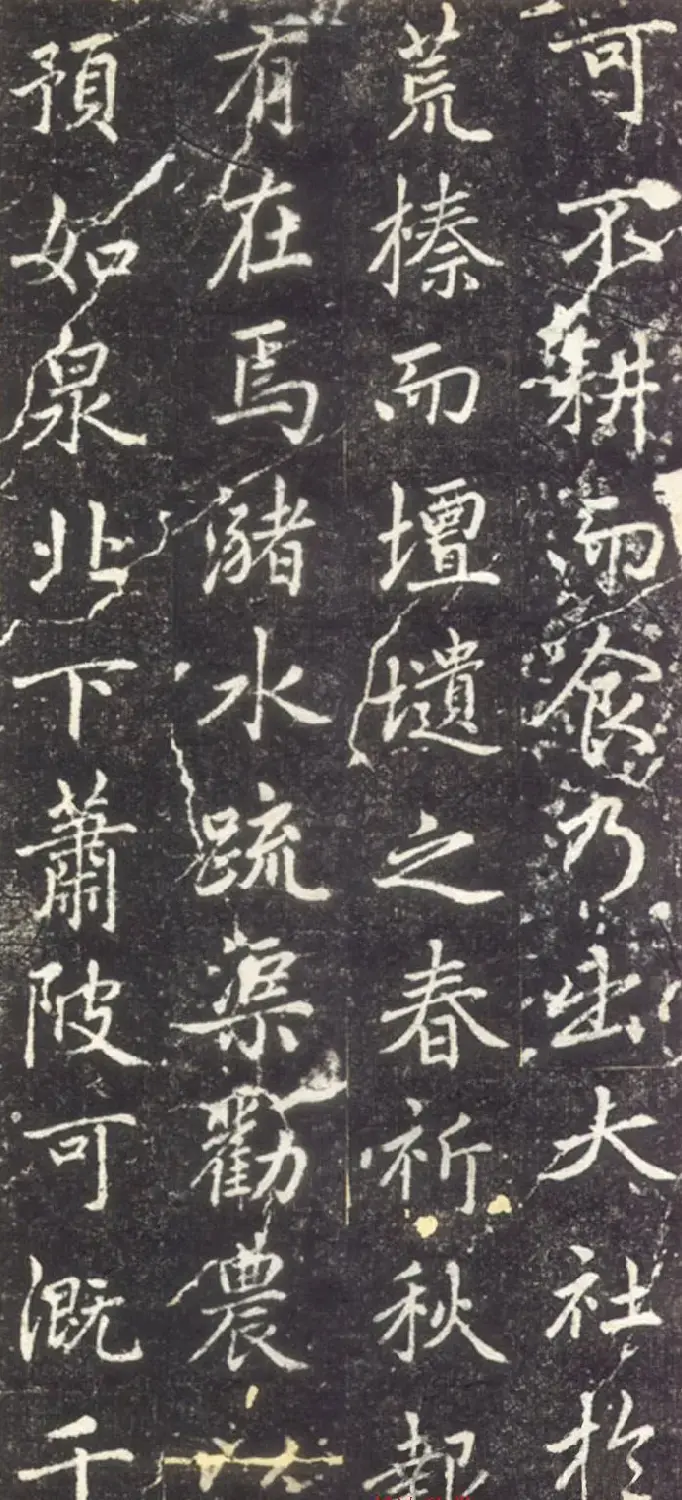 可不耕而食乃出大社於
荒榛而壇壝之春祈秋報
有在焉瀦水疏渠勸農
預如泉北下蕭陂可溉千